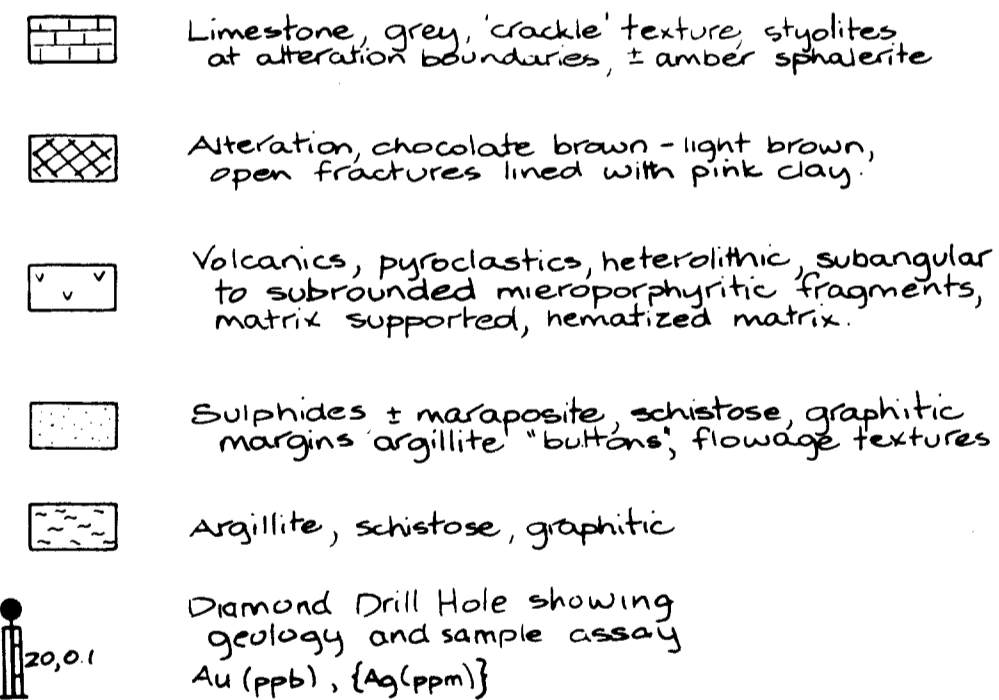 Limestone, grey, 'crackle' texture, styolites
at alteration boundaries, ± amber sphalerite
Alteration, chocolate brown - light brown,
open fractures lined with pink clay.
Volcanics, pyroclastics, heterolithic, subangular
to subrounded mieroporphyritic fragments,
matrix supported, hematized matrix.
Sulphides ± maraposite, schistose, graphitic
margins argillite "buttons", flowage textures
Argillite, schistose, graphitic
Diamond Drill Hole showing
geology and sample assay
20,0.1
Au (ppb), {Ag(ppm)}